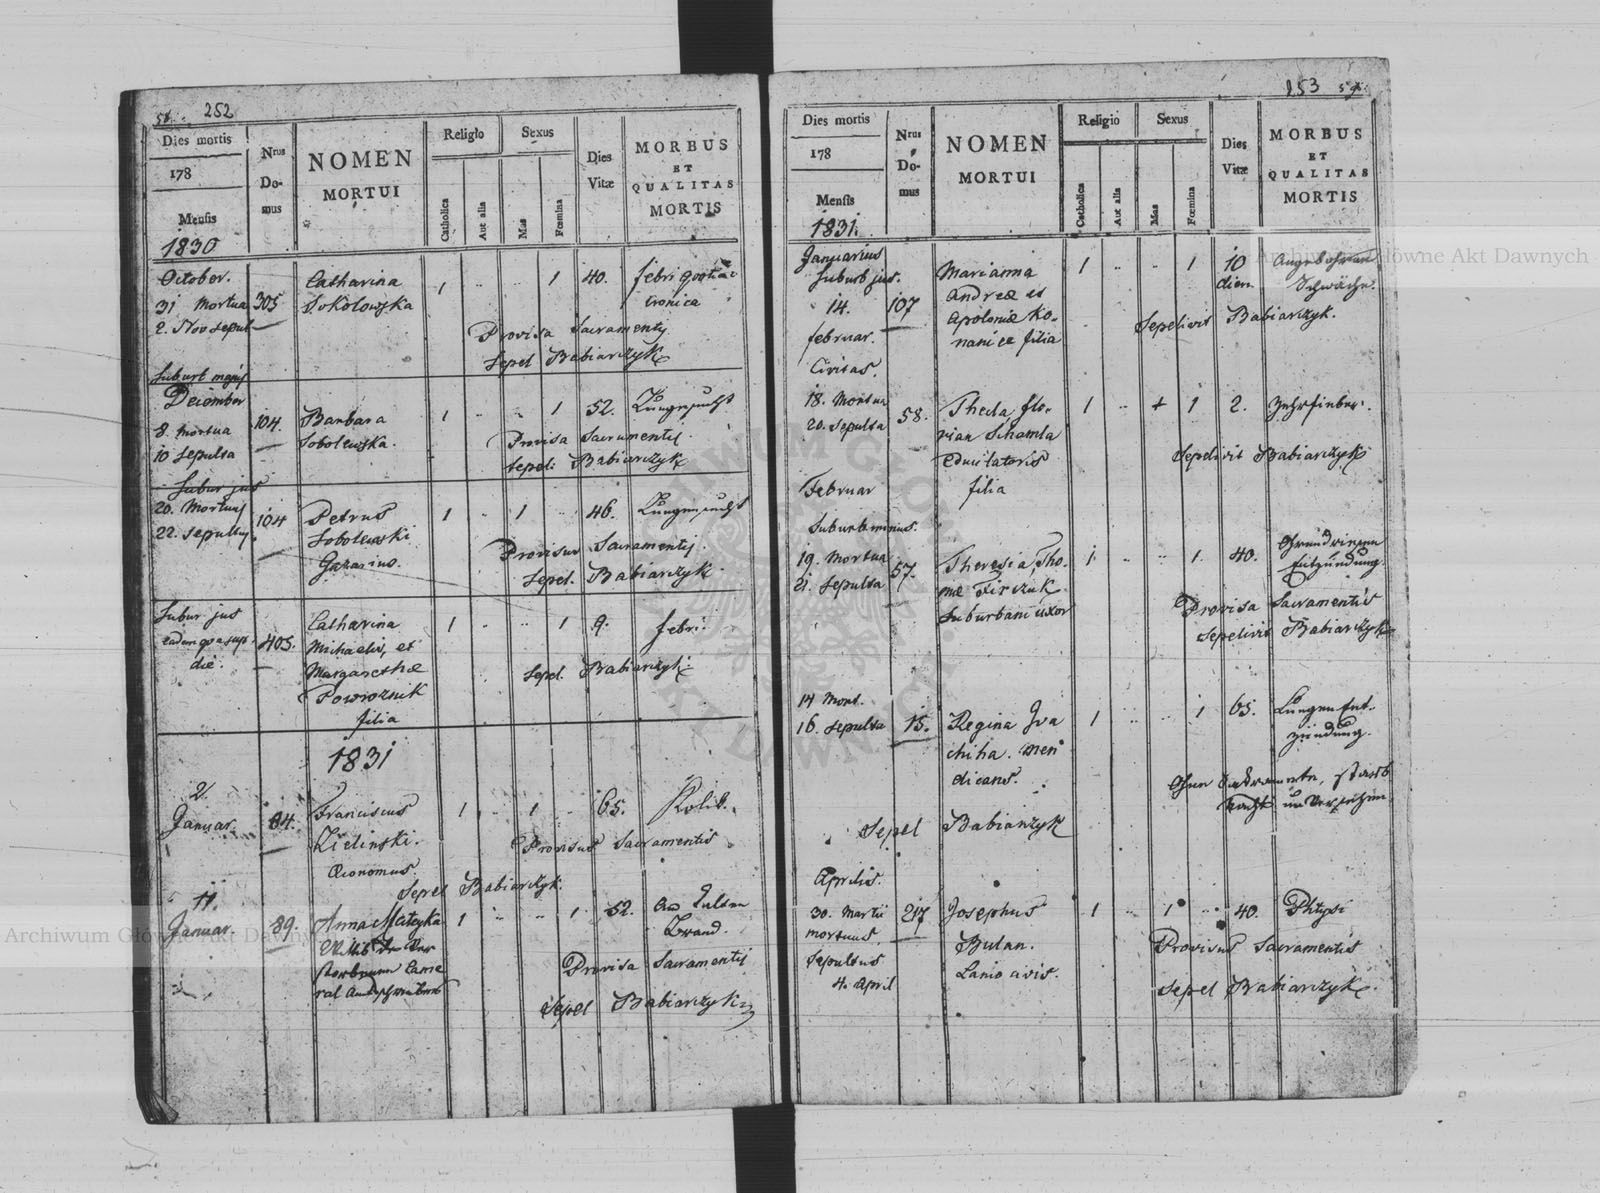 58. 252
Dies mortis
178
Mensis
Nrus
Do-
mus
NOMEN
MORTUI
Religio
Catholica
Aut alia
Sexus
Mas
Fœmina
Dies
Vitæ
MORBUS
ET
QUALITAS
MORTIS
1830
October.
31 Mortua 305 Catharina 1 1 40. febri
2. Nov sepul Sokolowska cronica
Provisa Sacramentis
Sepel Babiarczyk
Suburb majus
December
8. Mortua 104. Barbara 1 1 52. Lungensucht
10 Sepulta Sobolewska.
Provisa Sacramentis.
Sepel: Babiarczyk
Subur jus
20. Mortuus 104 Petrus 1 1 46. Lungensucht
22. Sepultus Sobolewski
Provisus Sacramentis.
Sepel. Babiarczyk
Subur jus
die. 405. Catharina 1 1 9. febri
Michaelis, et
Margarethæ
Powroznik
filia
Sepel. Babiarczyk.
1831
2.
Januar. 84. Franciscus 1 1 65. Kolik.
Zielinski.
Œconomus.
Provisus Sacramentis
Sepel Babiarczyk.
11.
Januar. 89. Anna Mateyka 1 1 52.
Brand.
Provisa Sacramentis
Sepel Babiarczyk
253 59.
Dies mortis
178
Mensis
Nrus
Do-
mus
NOMEN
MORTUI
Religio
Catholica
Aut alia
Sexus
Mas
Fœmina
Dies
Vitæ
MORBUS
ET
QUALITAS
MORTIS
1831.
Januarius
Suburb jus.
14. 107 Marianna 1 1 10 Angebohrene
Andreæ et dieru Schwäche.
Apoloniæ Ko-
nanicæ filia
Sepelivit Babiarczyk.
februar.
Civitas.
18. Mortua 58. Thecla, flo- 1 + 1 2. Zehrfieber.
20. Sepulta rian Schamla
filia
Sepelivit Babiarczyk
Februar
Suburb minus.
19. Mortua 57. Theresia, Tho- 1 1 40.
21. Sepulta mæ Firczuk Entzündung
Suburbani uxor
Provisa Sacramentis
Sepelivit Babiarczyk
14 Mort.
16. Sepulta 15. Regina Iva 1 1 65. Lungen Ent-
chiha. men zündung.
dicans.
Ohne Sakramente, starb
Sepel Babiarczyk
Aprilis.
30. Martii 217 Josephus 1 1 40. Phtysi
mortuus. Bulan.
Sepultus Lanio civis.
4. April
Provisus Sacramentis
Sepel Babiarczyk.
Archiwum Główne Akt Dawnych
Archiwum Główne Akt Dawnych
ARCHIWUM GŁÓWNE AKT DAWNYCH